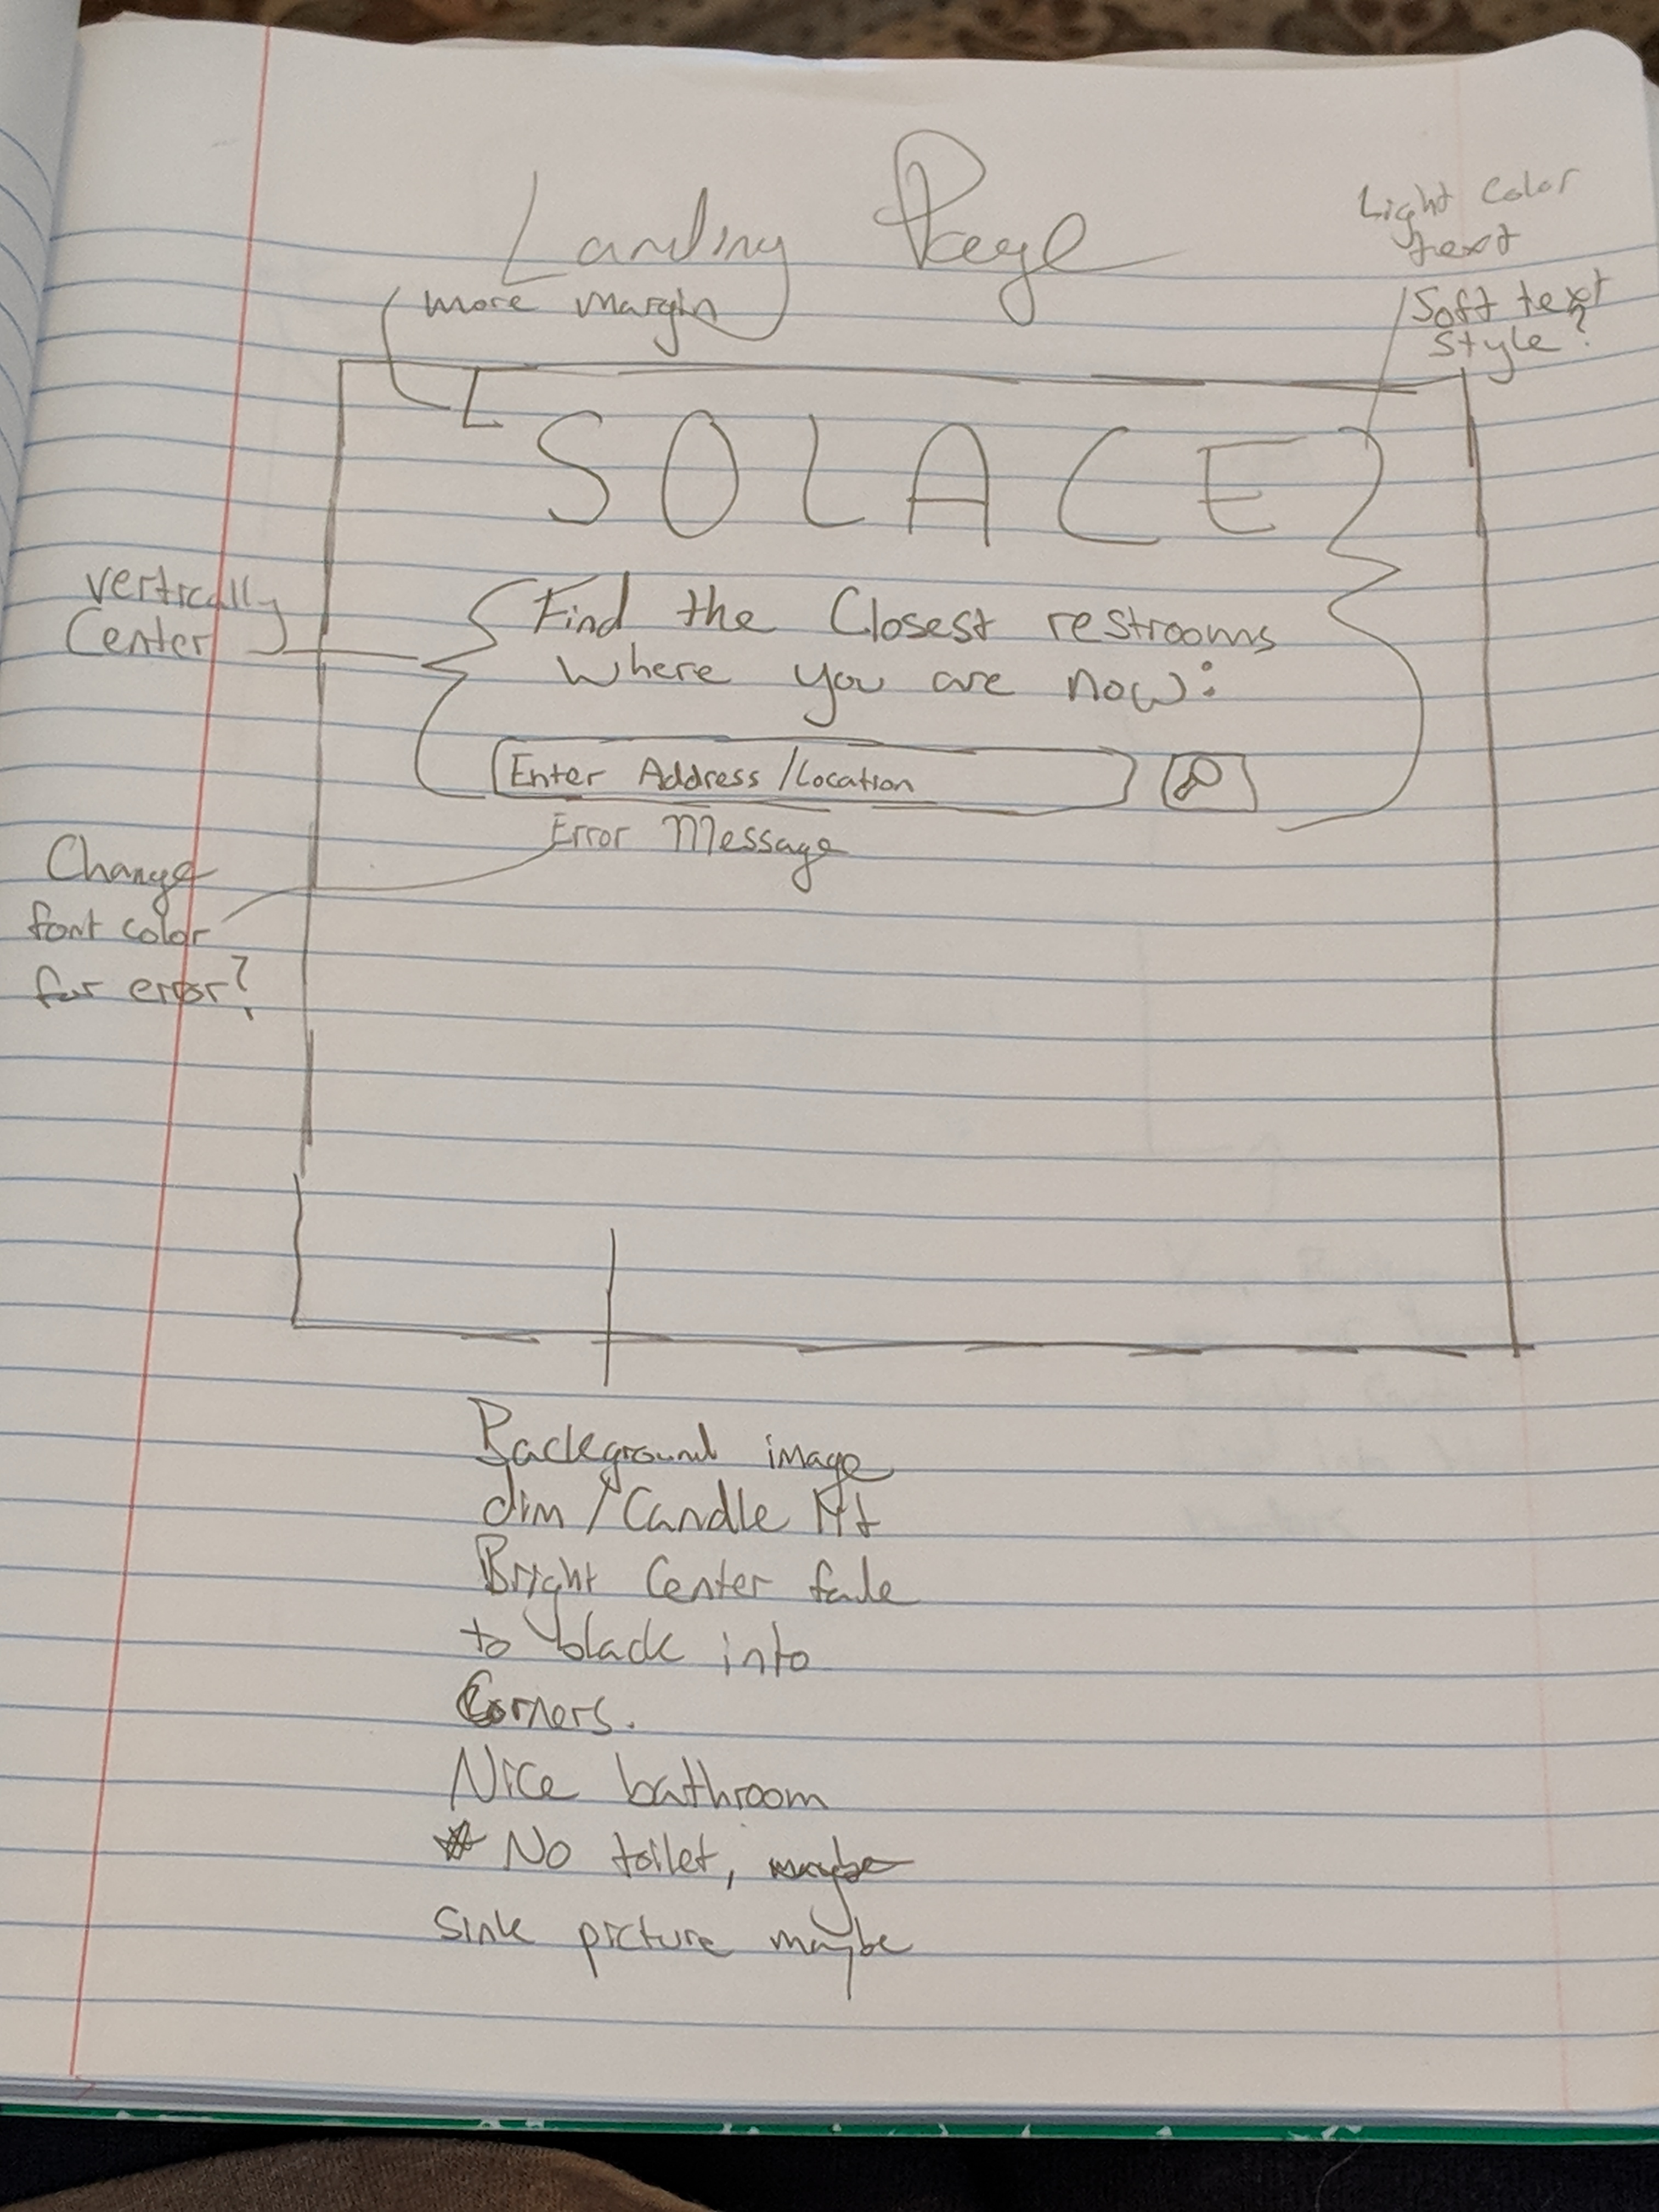 Landing Page
more margin
Light Color
text
Soft text
Style?
SOLACE
Vertically
Center
Find the Closest restrooms
Where you are now:
Enter Address/Location
Error Message
Change
font color
for error?
Background image
dim/Candle lit
Bright Center fade
to black into
Corners.
Nice bathroom
* No toilet, maybe
Sink picture maybe